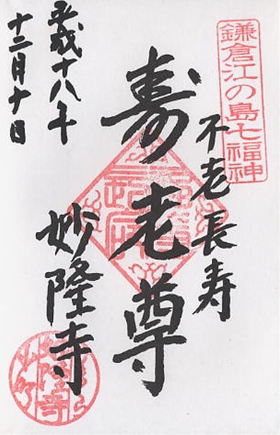 鎌倉江の島七福神
不老長寿
寿老尊
妙隆寺
平成十八年
十二月十日